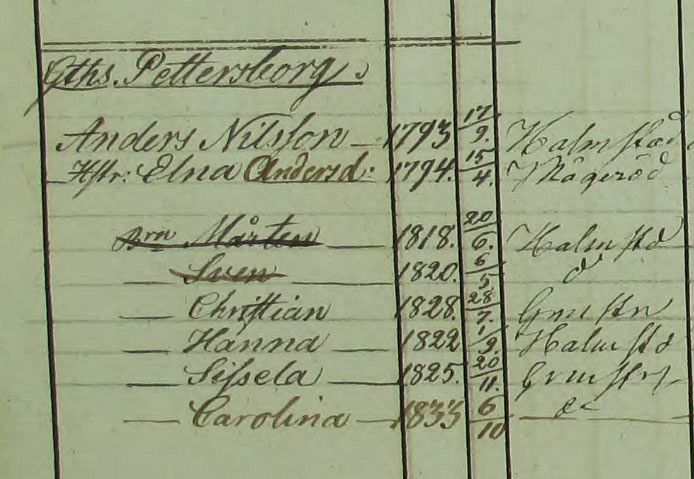 Gths. Pettersborg.
Anders Nilsson 1793 17/9. Halmstad
Hstr: Elna Andersd: 1794. 15/4. Mågeröd
Brn Mårten 1818. 20/6. Halmstd
Sven 1820. 6/5 do
Christian 1828. 28/7.
Hanna 1822 1/9. Halmstd
Sissela 1825. 20/11.
Carolina 1833 6/10 do